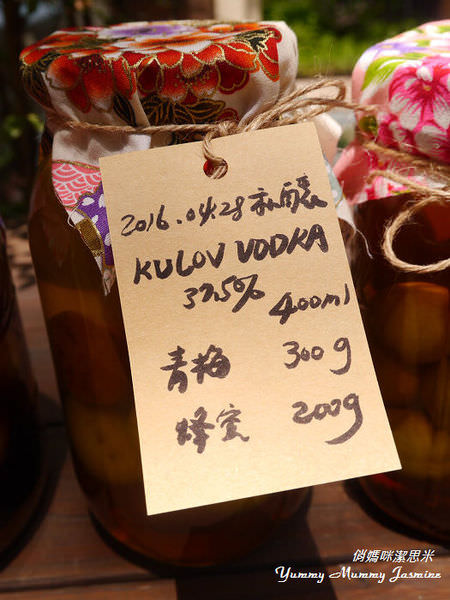 2016.04.28 私釀
KULOV VODKA
37.5% 400ml
青梅 300g
蜂蜜 200g
俏媽咪潔思米
Yummy Mummy Jasmine